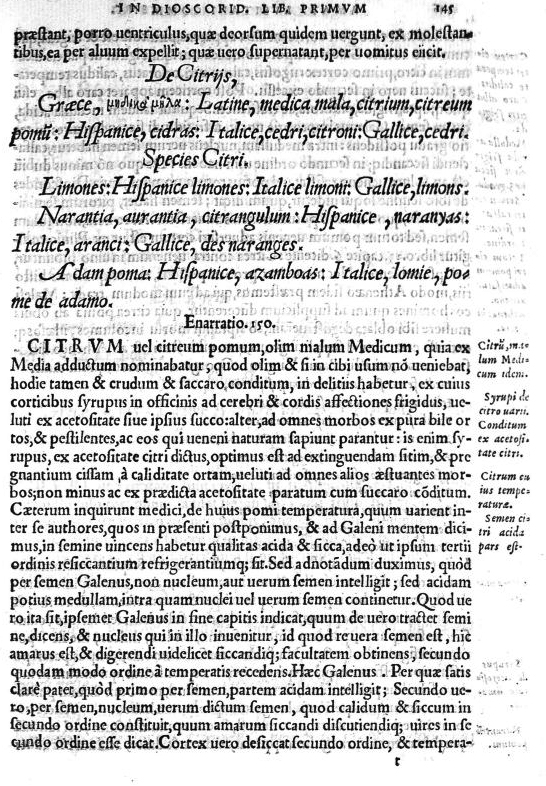 IN DIOSCORID. LIB. PRIMVM 145
præstant, porro uentriculus, quæ deorsum quidem uergunt, ex molestan-
tibus, ea per aluum expellit; quæ uero supernatant, per uomitus eiicit.
De Citrijs,
Græce, μηδικὰ μῆλα: Latine, medica mala, citrium, citreum
pomũ: Hispanice, cidras: Italice, cedri, citroni: Gallice, cedri.
Species Citri.
Limones: Hispanice limones: Italice limoni: Gallice, limons.
Narantia, aurantia, citrangulum: Hispanice, naranyas:
Italice, aranci: Gallice, des naranges.
Adam poma: Hispanice, azamboas: Italice, lomie, po-
me de adamo.
Enarratio. 150.
CITRVM uel citreum pomum, olim malum Medicum, quia ex
Media adductum nominabatur, quod olim & si in cibi usum nõ ueniebat,
hodie tamen & crudum & saccaro conditum, in delitijs habetur, ex cuius
corticibus syrupus in officinis ad cerebri & cordis affectiones frigidus, ue-
luti ex acetositate siue ipsius succo: alter, ad omnes morbos ex pura bile or
tos, & pestilentes, ac eos qui ueneni naturam sapiunt parantur: is enim sy-
rupus, ex acetositate citri dictus, optimus est ad extinguendam sitim, & præ
gnantium cissam, à caliditate ortam, ueluti ad omnes alios æstuantes mor-
bos, non minus ac ex prædicta acetositate paratum cum succaro cõditum.
Cæterum inquirunt medici, de huius pomi temperatura, quum uarient in-
ter se authores, quos in præsenti postponimus, & ad Galeni mentem dici-
mus, in semine uincens habetur qualitas acida & sicca, adeò ut ipsum tertii
ordinis resiccantium refrigerantiumq; sit. Sed adnotãdum duximus, quòd
per semen Galenus, non nucleum, aut uerum semen intelligit; sed acidam
potius medullam, intra quam nuclei uel uerum semen continetur. Quod ue
ro ita sit, ipsemet Galenus in fine capitis indicat, quum de uero tractet semi
ne, dicens, & nucleus qui in illo inuenitur, id quod reuera semen est, hic
amarus est, & digerendi uidelicet siccandiq; facultatem obtinens, secundo
quodam modo ordine à temperatis recedens. Hæc Galenus. Per quæ satis
clarè patet, quòd primo per semen, partem acidam intelligit; Secundo ue-
ro, per semen, nucleum, uerum dictum semen, quod calidum & siccum in
secundo ordine constituit, quum amarum siccandi discutiendiq; uires in se
cundo ordine esse dicat. Cortex uero desiccat secundo ordine, & tempera-
t
Citrũ, ma
lum Medi-
cum idem.
Syrupi de
citro uarii.
Conditum
ex acetosi-
tate citri.
Citrum cu
ius tempe-
raturæ.
Semen ci-
tri acida
pars est.